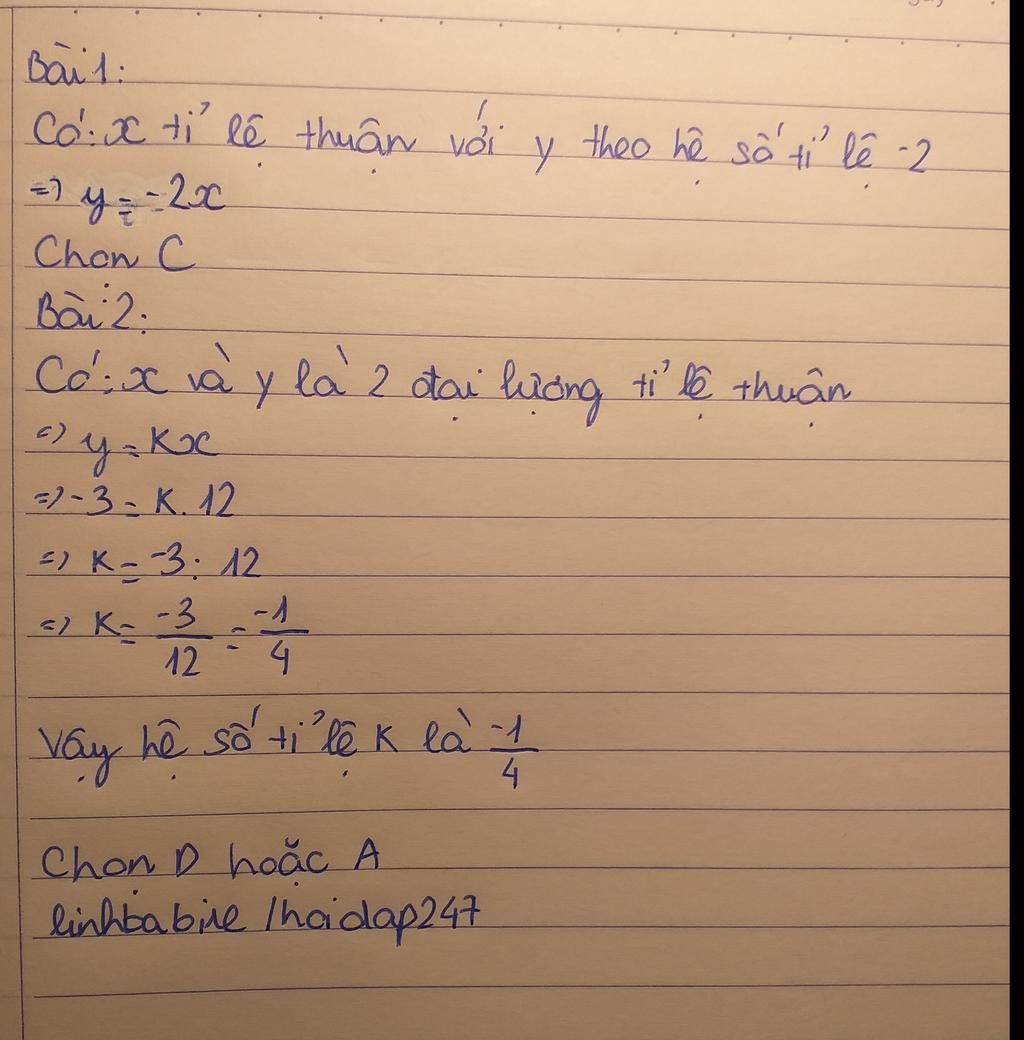 Bài 1:
Có: x tỉ lệ thuận với y theo hệ số tỉ lệ -2
=> y = -2x
Chọn C
Bài 2:
Có: x và y là 2 đại lượng tỉ lệ thuận
=> y = Kx
=> -3 = K. 12
=> K = -3 : 12
=> K = -3/12 = -1/4
Vậy hệ số tỉ lệ K là -1/4
Chọn D hoặc A
linhbabie /hoidap247